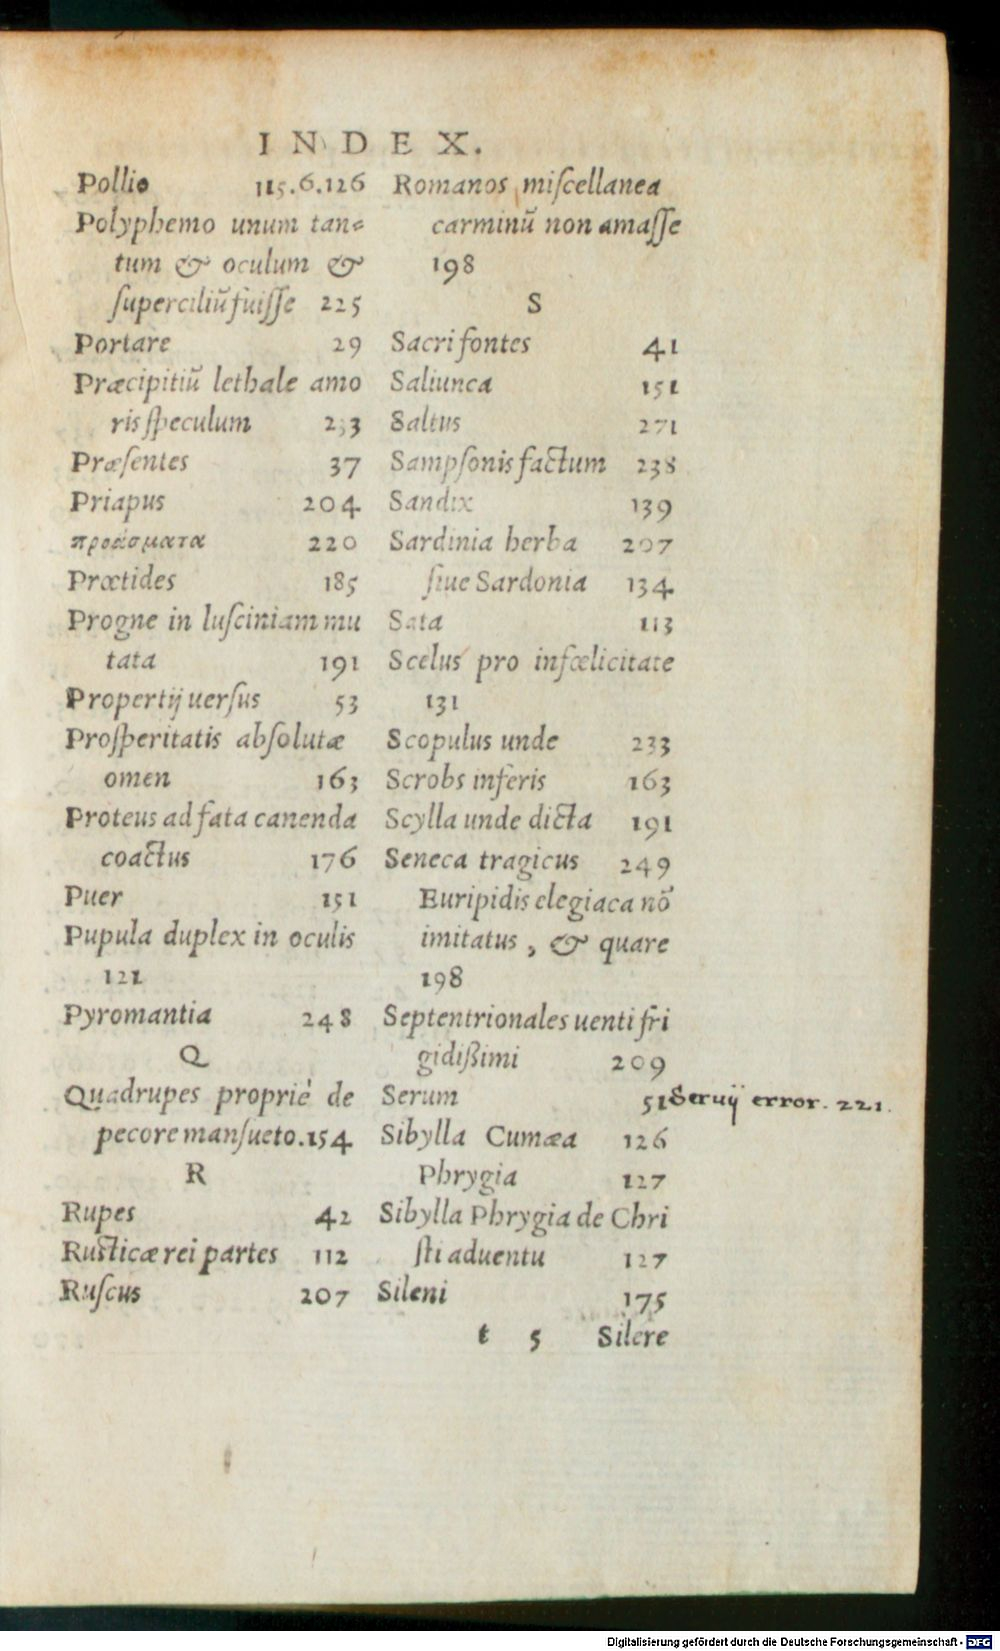 INDEX.
Pollio 115.6.126
Polyphemo unum tan=
tum & oculum &
ſuperciliũ fuiſſe 225
Portare 29
Præcipitiũ lethale amo
ris ſpeculum 233
Præſentes 37
Priapus 204
προάσματα 220
Prœtides 185
Progne in luſciniam mu
tata 191
Propertij uerſus 53
Proſperitatis abſolutæ
omen 163
Proteus ad fata canenda
coactus 176
Puer 151
Pupula duplex in oculis
121
Pyromantia 248
Q
Quadrupes propriè de
pecore manſueto. 154
R
Rupes 42
Ruſticæ rei partes 112
Ruſcus 207
Romanos miſcellanea
carminũ non amaſſe
198
S
Sacri fontes 41
Saliunca 151
Saltus 271
Sampſonis factum 238
Sandix 139
Sardinia herba 207
ſiue Sardonia 134
Sata 113
Scelus pro infœlicitate
131
Scopulus unde 233
Scrobs inferis 163
Scylla unde dicta 191
Seneca tragicus 249
Euripidis elegiaca nõ
imitatus, & quare
198
Septentrionales uenti fri
gidißimi 209
Serum 51
Seruij error. 221.
Sibylla Cumæa 126
Phrygia 127
Sibylla Phrygia de Chri
ſti aduentu 127
Sileni 175
t 5 Silere
Digitalisierung gefördert durch die Deutsche Forschungsgemeinschaft - DFG